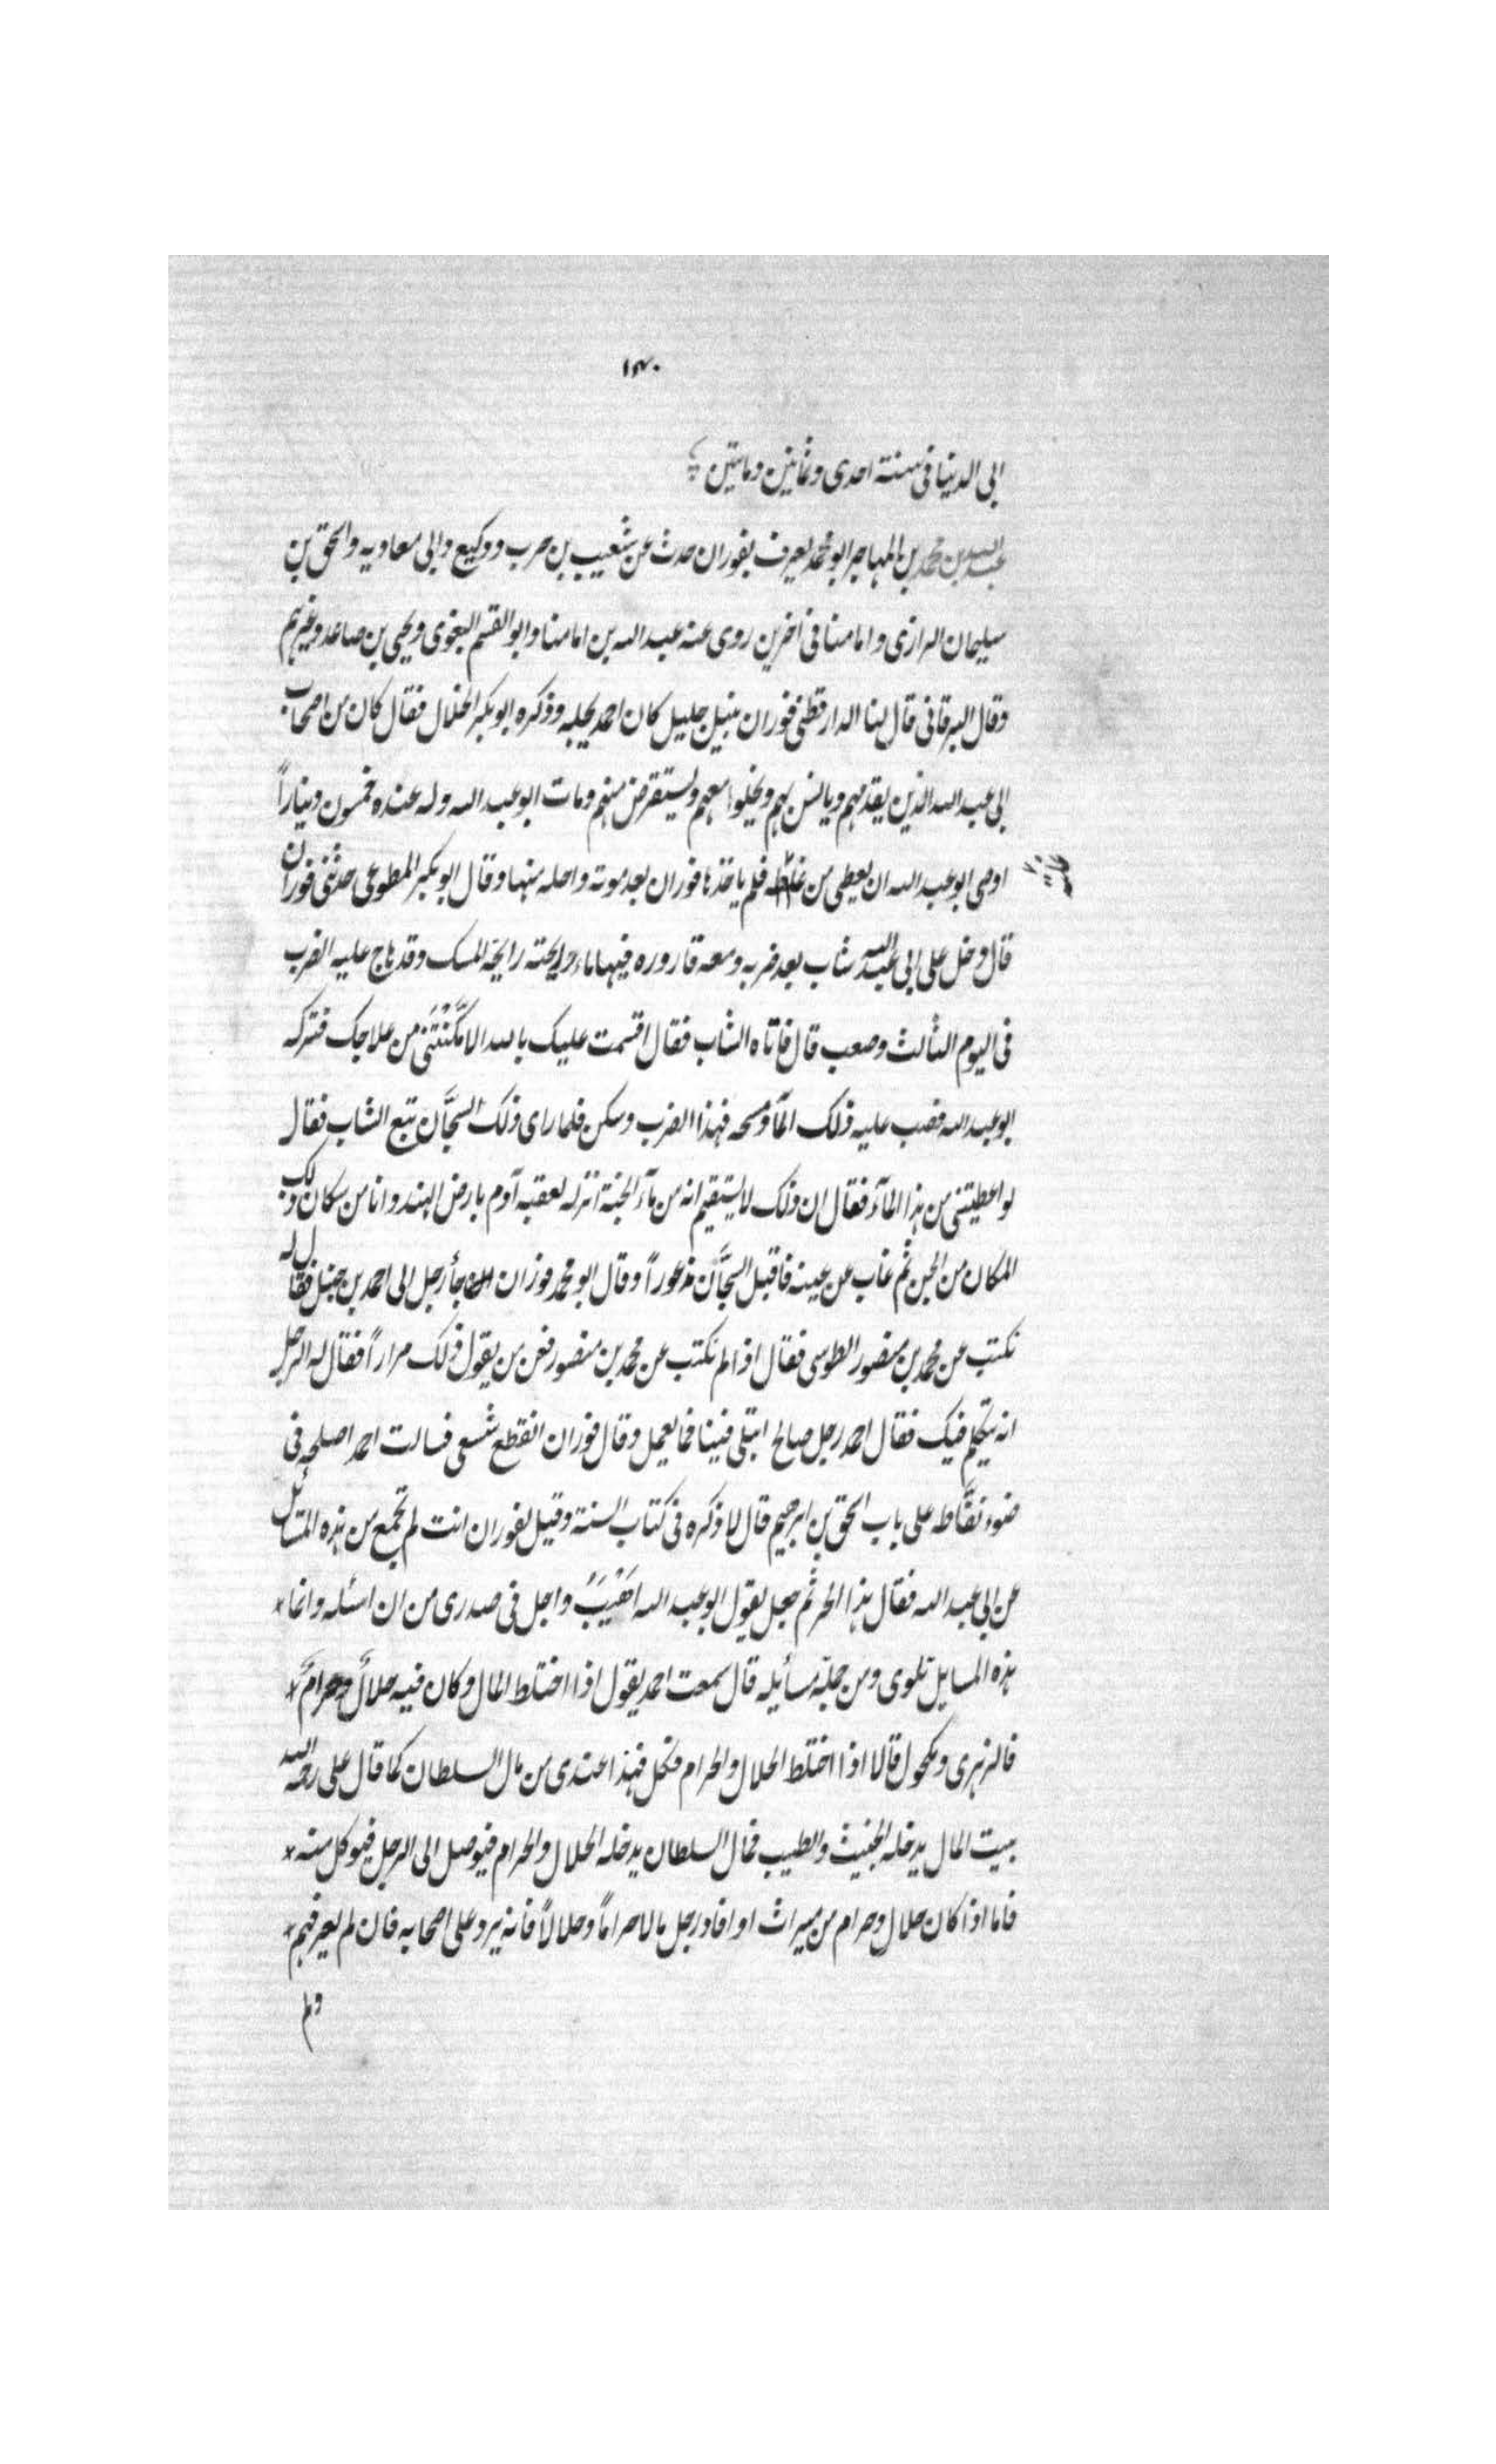 ١٣٠
ابى الدنيا فى سنة احدى وثمانين وماتين
عبد الله بن محمد بن المهاجر ابو محمد يعرف بفوران حدث عن شعيب بن حرب ووكيع وابى معاويه واسحق بن
سليمان الرازى وامامنا فى آخرين روى عنه عبد الله بن امامنا وابو القسم البغوى ويحيى بن صاعد وغيرهم
وقال البرقانى قال لنا الدارقطنى فوران نبيل جليل كان احمد يجله وذكره ابو بكر الخلال فقال كان من اصحاب
ابى عبد الله الذين يقدمهم ويانس بهم ويخلوا معهم ويستقرض منهم ومات ابو عبد الله وله عنده خمسون ديناراً
اوصى ابو عبد الله ان يعطى من غلته فلم ياخذها فوران بعد موته واحله منها وقال ابو بكر المطوعى حدثنى فوران
قال دخل على ابى عبد الله شاب بعد ضربه ومعه قاروره فيها ماء ورايحته رايحة المسك وقد هاج عليه الضرب
فى اليوم الثالث وصعب قال فاتاه الشاب فقال اقسمت عليك بالله الا مَكَّنْتَنى من علاجك فتركه
ابو عبد الله فصب عليه ذلك المآء ومسحه فهذا الضرب وسكن فلما راى ذلك السجَّان تبع الشاب فقال
لو اعطيتنى من هذا المآء فقال ان ذلك لا يستقيم انه من مآء الجنة انزله لعقبه آدم بارض الهند وانا من سكان ذلك
المكان من الجن ثم غاب عن عينه فاقبل السجَّان مذعوراً وقال ابو محمد فوزان جأ رجل الى احمد بن حنبل فقال له
نكتب عن محمد بن منصور الطوسى فقال اذا لم نكتب عن محمد بن منصور فعن من يقول ذلك مراراً فقال له الرجل
انه يتكلم فيك فقال احمد رجل صالح ابتلى فينا فما نعمل وقال فوزان انقطع شسعى فسالت احمد اصلحه فى
ضوء نفَّاطه على باب اسحق بن ابرهيم قال لا ذكره فى كتاب السنة وقيل لفوران انت لم تجمع من هذه المسائل
عن ابى عبد الله فقال هذا الحر ثم جعل يقول ابو عبد الله اَهْيَبُ واجل فى صدرى من ان اسئله وانما
هذه المسايل تلوى ومن جملة مسائيله قال سمعت احمد يقول اذا اختلط المال وكان فيه حلالٌ وحرامٌ
فالزهرى ومكحول قالا اذا اختلط الحلال والحرام فكل فهذا عندى من مال السلطان كما قال على رحمه الله
بيت المال يدخله الخبيث والطيب فمال السلطان يدخله الحلال والحرام فيوصل الى الرجل فيوكل منه
فاما اذا كان حلال وحرام من ميراث او افاد رجل مالا حراماً وحلالاً فانه يرد على اصحابه فان لم يعرفهم
ولم